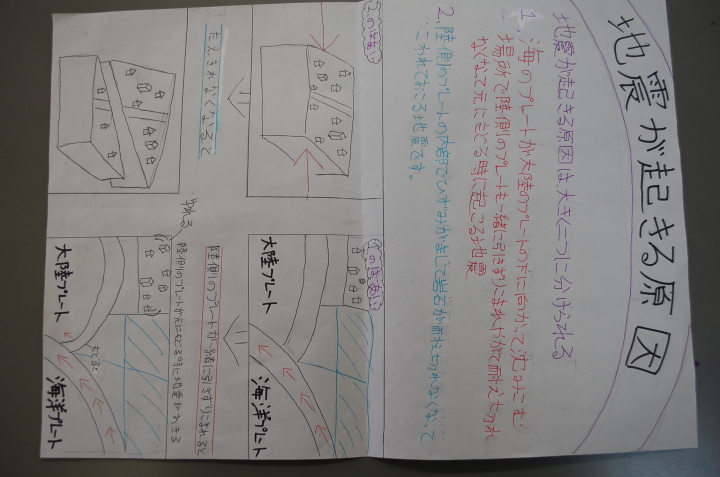 地震が起きる原因
地震が起きる原因は、大きく二つに分けられる
1. 海のプレートが大陸のプレートの下に向かって沈みこむ
場所で陸側のプレートも一緒に引きずりこまれやがて耐え切れ
なくなって元にもどる時に起こる地震
2. 陸側のプレートの内部でひずみがまして岩石が耐え切れなくなって
こわれておこる地震です。
1.のばあい
大陸プレート
海洋プレート
陸側のプレートが一緒に引きずりこまれると
ゆれる
陸側のプレートが元にもどる時に地震がおきる
もどると
大陸プレート
海洋プレート
2.のばあい
たえきれなくなると